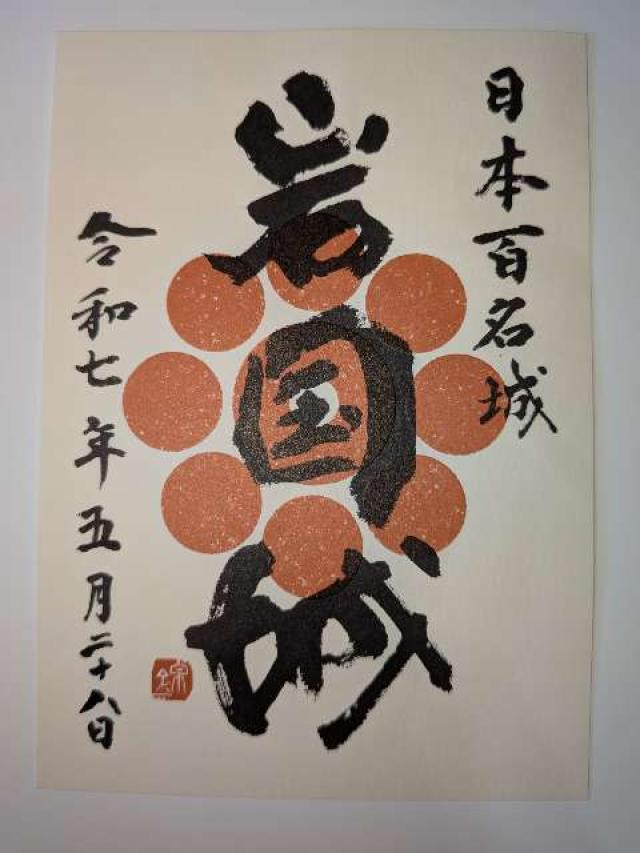 日本百名城
岩国城
令和七年五月二十八日